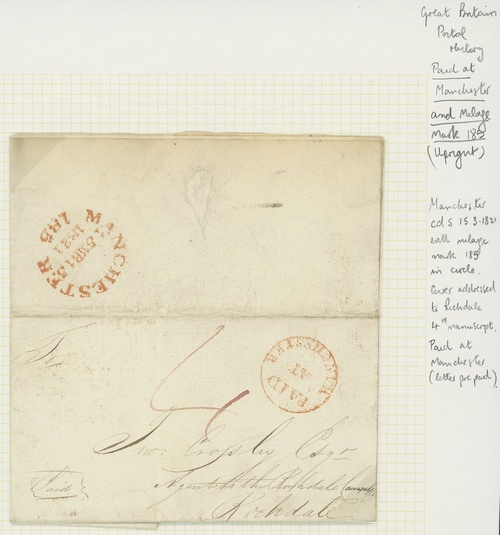 Great Britain
Postal
History
Paid at
Manchester
and Milage
Mark 185
(Upright)
Manchester
cds 15.3.1821
with milage
mark 185
in circle.
Cover addressed
to Rochdale
4d manuscript.
Paid at
Manchester
(letter prepaid)
MANCHESTER
15 MR 15
1821
185
PAID
AT
MANCHESTER
4
Jno. Crossley Esqr
Agent to the Rochdale
Rochdale
Paid